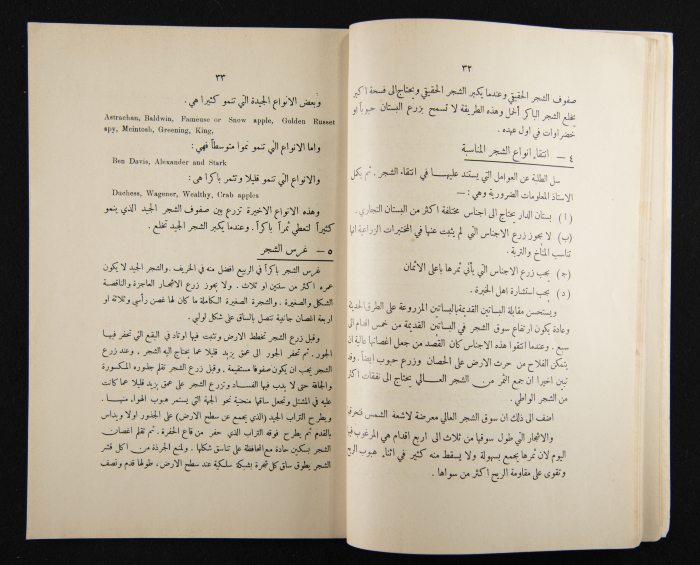 ٣٢
صفوف الشجر الحقيقي وعندما يكبر الشجر الحقيقي ويحتاج الى فسحة اكبر
يخلع الشجر الباكر الحمل وهذه الطريقة لا تسمح بزرع البستان حبوباً او
خضراوات في اول عهده .
٤ — انتقاء انواع الشجر المناسبة
سل الطلبة عن العوامل التي يستند عليها في انتقاء الشجر . ثم يكمل
الاستاذ المعلومات الضرورية وهي : —
(ا) بستان الدار يحتاج الى اجناس مختلفة اكثر من البستان التجاري .
(ب) لا يجوز زرع الاجناس التي لم يثبت عنها في المختبرات الزراعية انها
تناسب المناخ والتربة .
(ج) يجب زرع الاجناس التي يأتي ثمرها باعلى الاثمان
(د) يجب استشارة اهل الخبرة .
ويستحسن مقابلة البساتين القديمة بالبساتين المزروعة على الطرق الحديثة
وعادة يكون ارتفاع سوق الشجر في البساتين القديمة من خمس اقدام الى
سبع . وعندما انتقوا هذه الاجناس كان القصد من جعل اغصانها عالية ان
يتمكن الفلاح من حرث الارض على الحصان وزرع حبوب ايضاً . وقد
تبين اخيرا ان جمع الثمر من الشجر العالي يحتاج الى نفقات اكثر
من الشجر الواطي .
اضف الى ذلك ان سوق الشجر العالي معرضة لاشعة الشمس فتحرقها
والاشجار التي طول سوقها من ثلاث الى اربع اقدام هي المرغوب فيها
اليوم لان ثمرها يجمع بسهولة ولا يسقط منه كثير في اثناء هبوب الريح
وتقوى على مقاومة الريح اكثر من سواها .
٣٣
وبعض الانواع الجيدة التي تنمو كثيرا هي .
Astrachan, Baldwin, Fameuse or Snow apple, Golden Russet
spy, Meintosh, Greening, King,
واما الانواع التي تنمو نموا متوسطاً فهي :
Ben Davis, Alexander and Stark
والانواع التي تنمو قليلا وتثمر باكرا هي :
Duchess, Wagener, Wealthy, Crab apples
وهذه الانواع الاخيرة تزرع بين صفوف الشجر الجيد الذي ينمو
كثيراً لتعطي ثمراً باكراً . وعندما يكبر الشجر الجيد تخلع .
٥ — غرس الشجر
غرس الشجر باكراً في الربيع افضل منه في الخريف . والشجر الجيد لا يكون
عمره اكثر من سنتين او ثلاث . ولا يجوز زرع الاشجار العاجزة والناقصة
الشكل والصغيرة . والشجرة الصغيرة الكاملة ما كان لها غصن رأسي وثلاثة او
اربعة اغصان جانبية تتصل بالساق على شكل لولبي .
وقبل زرع الشجر تخطط الارض وتثبت فيها اوتاد في البقع التي تحفر فيها
الجور . ثم تحفر الجور الى عمق يزيد قليلا عما يحتاج اليه الشجر . وعند زرع
الشجر يجب ان يكون صفوفا مستقيمة . وقبل زرع الشجر تقلم جذوره المكسورة
والجافة حتى لا يدب فيها الفساد وتزرع الشجر على عمق يزيد قليلا عما كانت
عليه في المشتل وتجعل ساقها منحنية نحو الجهة التي يستمر هبوب الهواء منها .
ويطرح التراب الجيد (الذي يجمع عن سطح الارض) على الجذور اولا ويداس
بالقدم ثم يطرح فوقه التراب الذي حفر من قاع الحفرة . ثم تقلم اغصان
الشجر بسكين حادة مع المحافظة على تناسق شكلها . ولمنع الجرذة من اكل قشر
الشجر يطوق ساق كل شجرة بشبكة سلكية عند سطح الارض ، طولها قدم ونصف